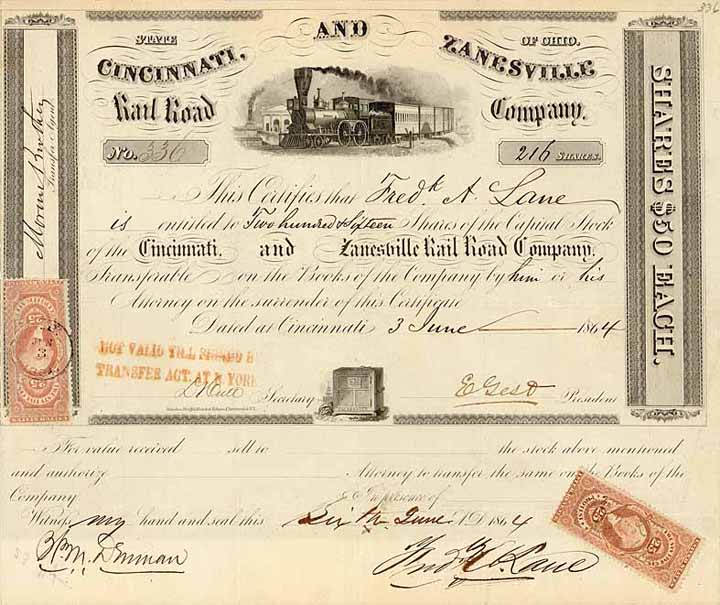 336
STATE AND OF OHIO.
CINCINNATI, ZANESVILLE
Rail Road Company.
No. 336
216 SHARES.
This Certifies that Fredk A. Lane
is entitled to Two hundred & Sixteen Shares of the Capital Stock
of the Cincinnati, and Zanesville Rail Road Company.
Transferable on the Books of the Company by him or his
Attorney on the surrender of this Certificate
Dated at Cincinnati 3 June 1864
NOT VALID TILL SIGNED B
TRANSFER AGT. AT N. YORK
Secretary
E Gest President
Transfer Agent
SHARES $50 EACH.
For value received sell to the stock above mentioned
and authorize Attorney to transfer the same on the Books of the
Company In presence of
Witness my hand and seal this Sixth June AD 1864
Fredk A. Lane
25
25